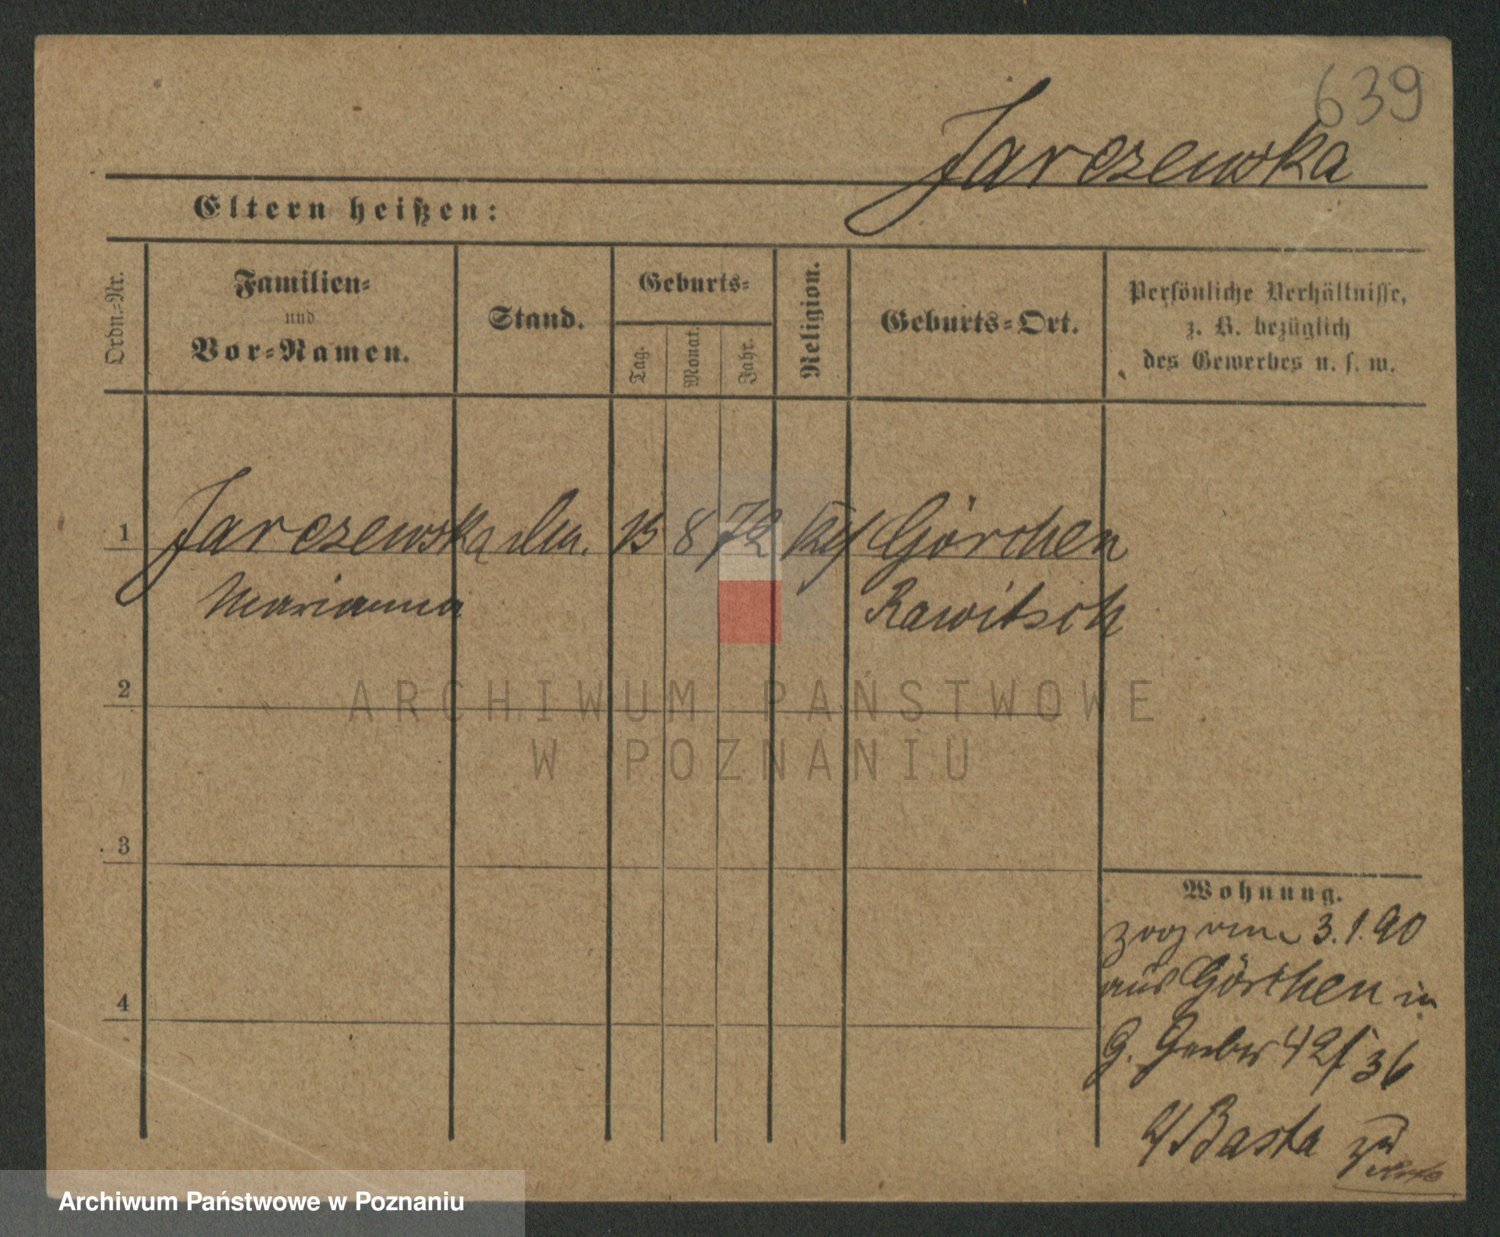 639
Jarczewska
Eltern heißen:
Ordn.-Nr.
Familien-
und
Vor-Namen.
Stand.
Geburts-
Tag.
Monat.
Jahr.
Religion.
Geburts-Ort.
Persönliche Verhältnisse,
z. B. bezüglich
des Gewerbes u. s. w.
1 Jarczewska 15 8 72 Görchen
Marianna Rawitsch
2
3
4
Wohnung.
zog am 3.1.90
aus Görchen in
G. Gerber 42/36
b/ Basta
ARCHIWUM PAŃSTWOWE
W POZNANIU
Archiwum Państwowe w Poznaniu